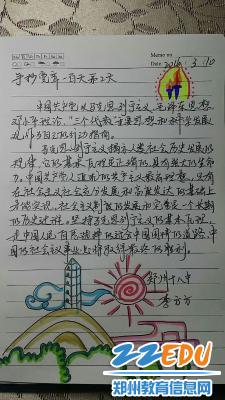 Memo no.
Date 2016. 3. 10
手抄党章一百天第2天
中国共产党以马克思列宁主义、毛泽东思想、
邓小平理论、“三个代表”重要思想和科学发展
观作为自己的行动指南。
马克思列宁主义揭示了人类社会历史发展的
规律,它的基本原理是正确的,具有强大的生命
力。中国共产党人追求的共产主义最高理想,只有
在社会主义社会充分发展和高度发达的基础上
才能实现。社会主义制度的发展和完善是一个长期
的历史过程。坚持马克思列宁主义的基本原理,
走中国人民自愿选择的适合中国国情的道路,中
国的社会主义事业必将取得最终的胜利。
郑州十八中
李
ZZEDU
郑州教育信息网